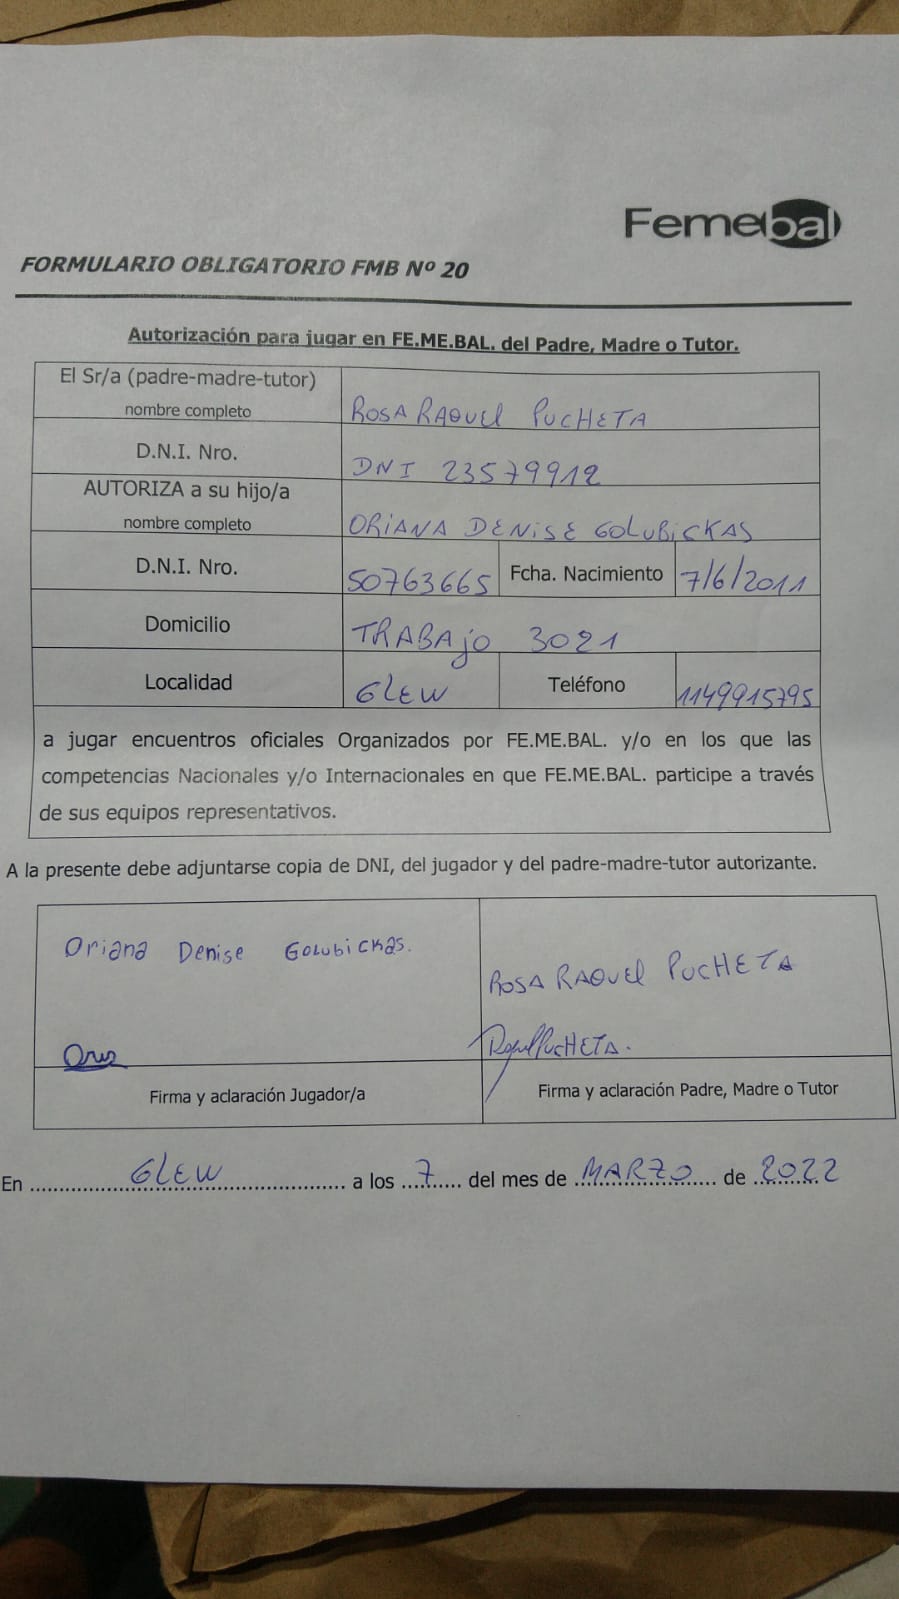 Femebal
FORMULARIO OBLIGATORIO FMB Nº 20
Autorización para jugar en FE.ME.BAL. del Padre, Madre o Tutor.
El Sr/a (padre-madre-tutor)
nombre completo
ROSA RAQUEL PUCHETA
D.N.I. Nro.
DNI 23579912
AUTORIZA a su hijo/a
nombre completo
ORIANA DENISE GOLUBICKAS
D.N.I. Nro. 50763665 Fcha. Nacimiento 7/6/2011
Domicilio TRABAJO 3021
Localidad GLEW Teléfono 1149915795
a jugar encuentros oficiales Organizados por FE.ME.BAL. y/o en los que las
competencias Nacionales y/o Internacionales en que FE.ME.BAL. participe a través
de sus equipos representativos.
A la presente debe adjuntarse copia de DNI, del jugador y del padre-madre-tutor autorizante.
Oriana Denise Golubickas.
ROSA RAQUEL PUCHETA
PUCHETA.
Firma y aclaración Jugador/a
Firma y aclaración Padre, Madre o Tutor
En GLEW a los 7 del mes de MARZO de 2022